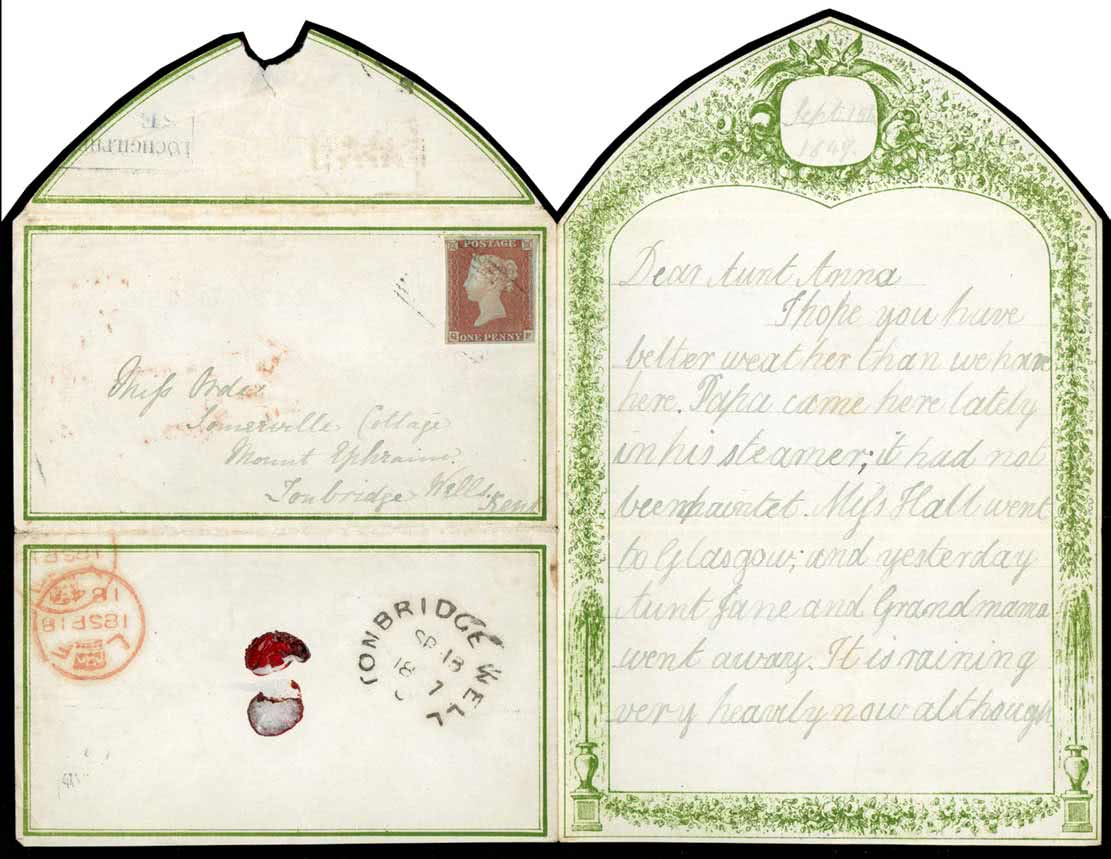 LOCHGILPH
POSTAGE
ONE PENNY
Miss Orde
Somerville Cottage
Mount Ephraim
Tonbridge Wells
Kent
18SP18
18SP18
184
TONBRIDGE WELL
SP 18
18 7
Sept. 15th
1847.
Dear Aunt Anna
I hope you have
better weather than we have
here. Papa came here lately
in his steamer; it had not
been paintet. Miss Hall went
to Glasgow; and yesterday
Aunt Jane and Grandmama
went away. It is raining
very heavily now although